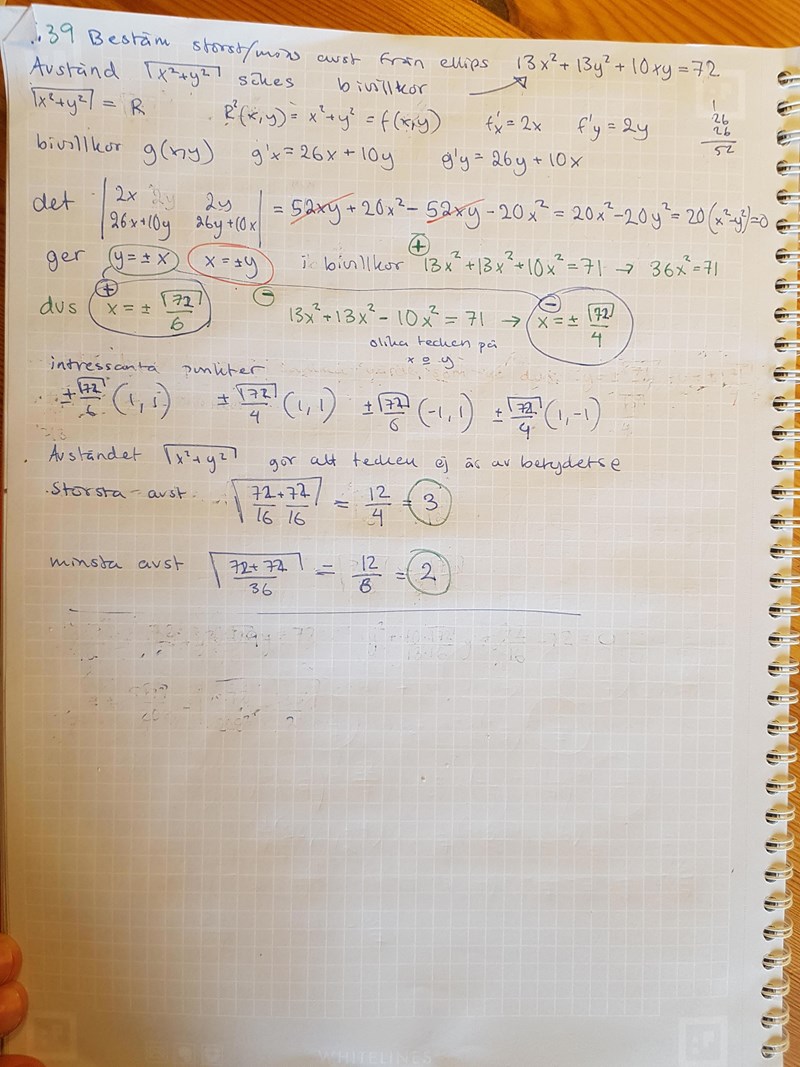 .39 Bestäm störst/mins avst från ellips 13x²+13y²+10xy=72
Avstånd √x²+y² sökes bivillkor
√x²+y² = R R²(x,y) = x²+y² = f(x,y) f'x = 2x f'y = 2y
1
26
26
52
bivillkor g(x,y) g'x = 26x + 10y g'y = 26y + 10x
det | 2x 2y | = 52xy + 20x² - 52xy - 20x² = 20x² - 20y² = 20(x²-y²)=0
| 26x+10y 26y+10x |
ger y = ± x x = ± y i bivillkor ⊕ 13x² + 13x² + 10x² = 71 → 36x² = 71
dvs ⊕ x = ± √72/6 ⊖ 13x² + 13x² - 10x² = 71 → ⊖ x = ± √72/4
olika tecken på
x o y
intressanta punkter
± √72/6 (1, 1) ± √72/4 (1, 1) ± √72/6 (-1, 1) ± √72/4 (1, -1)
Avståndet √x²+y² gör att tecken ej är av betydelse
största avst √72/16 + 72/16 = 12/4 = 3
minsta avst √72+72/36 = 12/6 = 2
WHITELINES